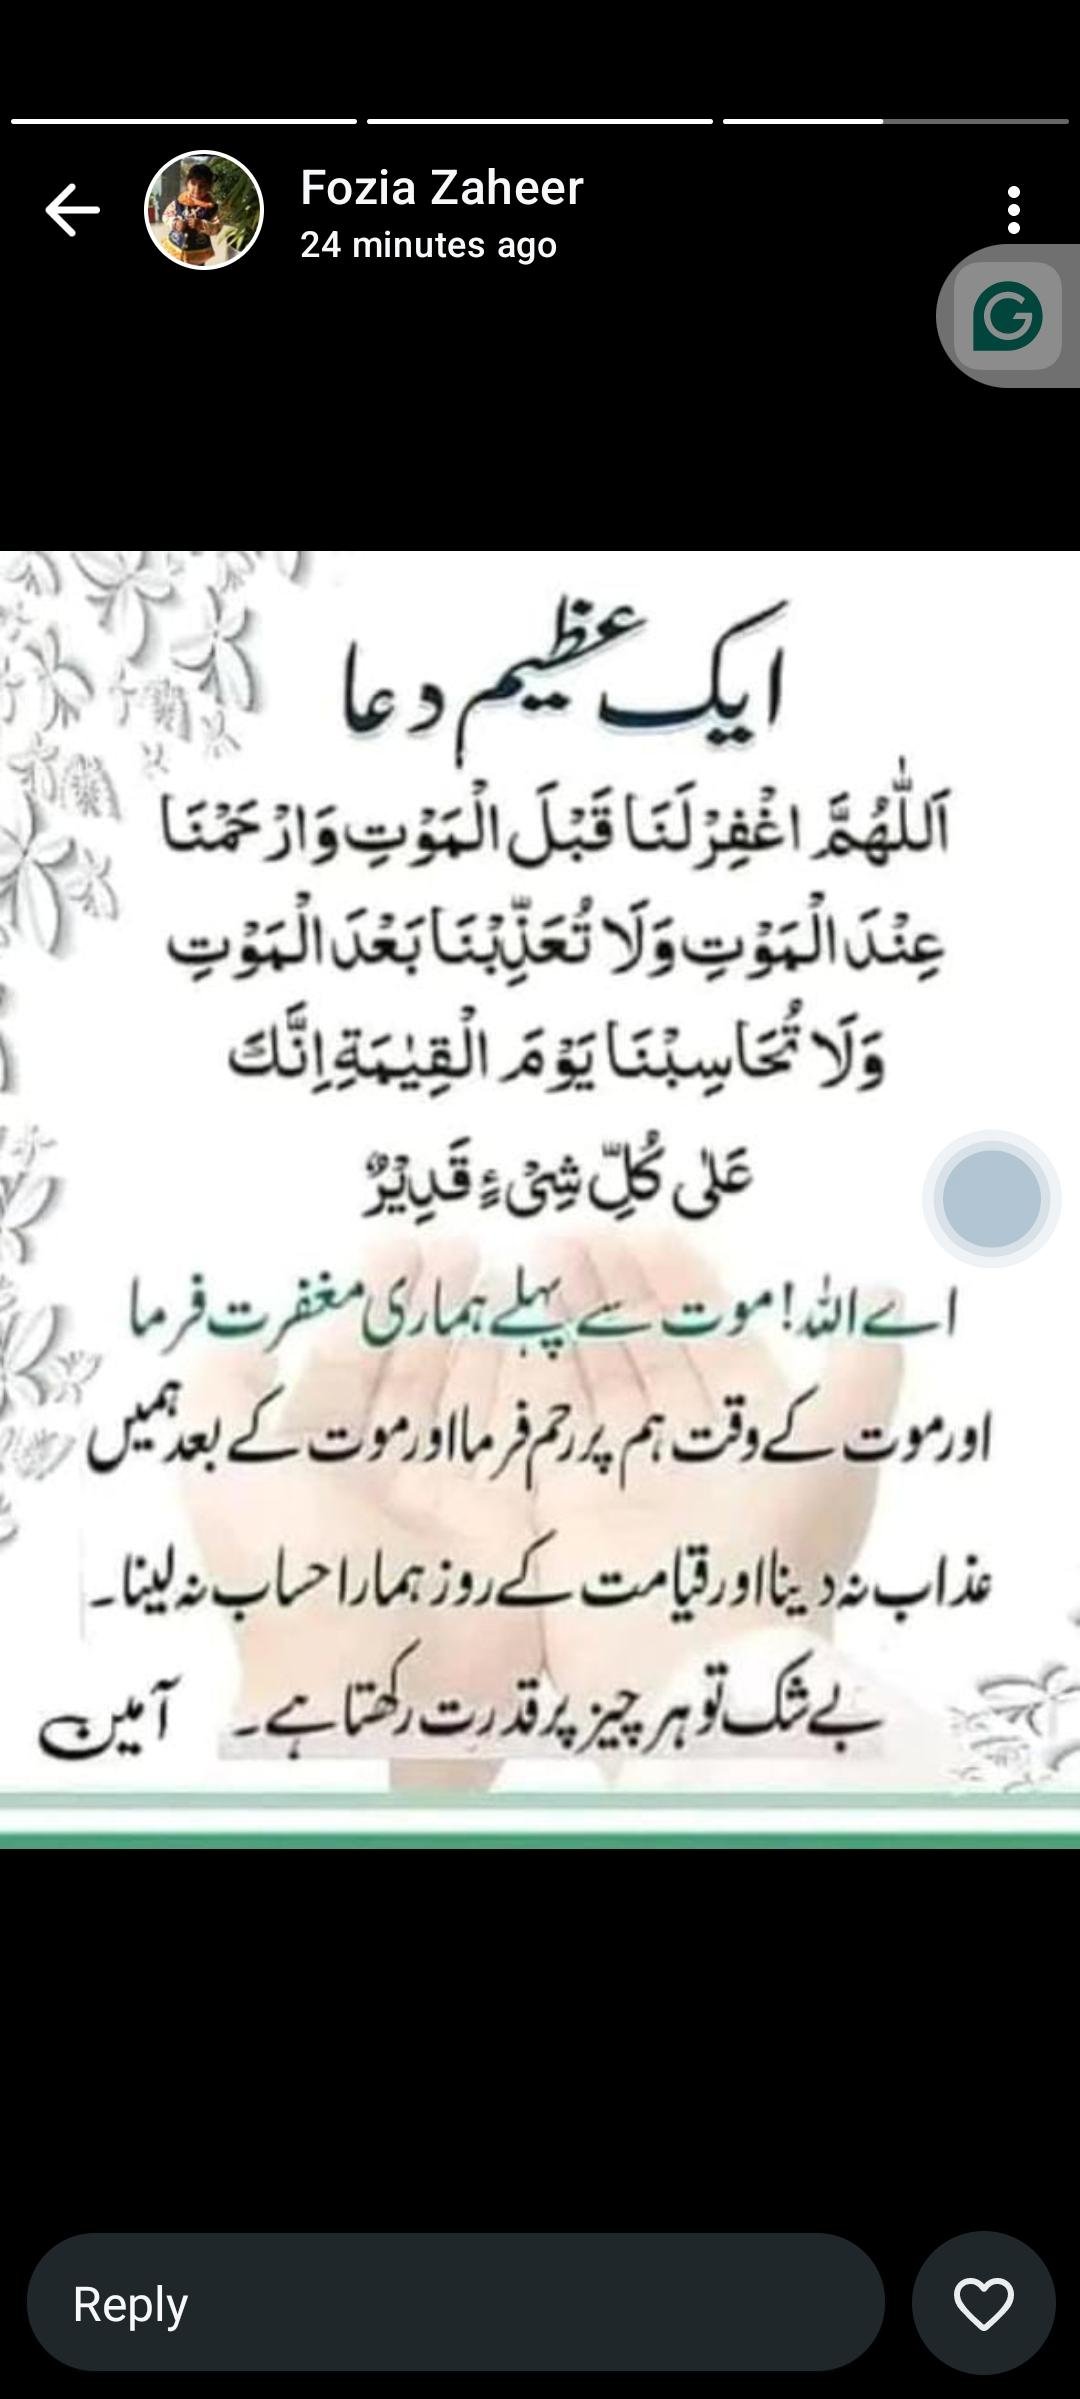 Fozia Zaheer
24 minutes ago
ایک عظیم دعا
اَللّٰهُمَّ اغْفِرْلَنَا قَبْلَ الْمَوْتِ وَارْحَمْنَا
عِنْدَ الْمَوْتِ وَلَا تُعَذِّبْنَا بَعْدَ الْمَوْتِ
وَلَا تُحَاسِبْنَا يَوْمَ الْقِيٰمَةِ اِنَّكَ
عَلٰى كُلِّ شِیْءٍ قَدِيْرٌ
اے اللہ! موت سے پہلے ہماری مغفرت فرما
اور موت کے وقت ہم پر رحم فرما اور موت کے بعد ہمیں
عذاب نہ دینا اور قیامت کے روز ہمارا حساب نہ لینا۔
بے شک تو ہر چیز پر قدرت رکھتا ہے۔ آمین
Reply